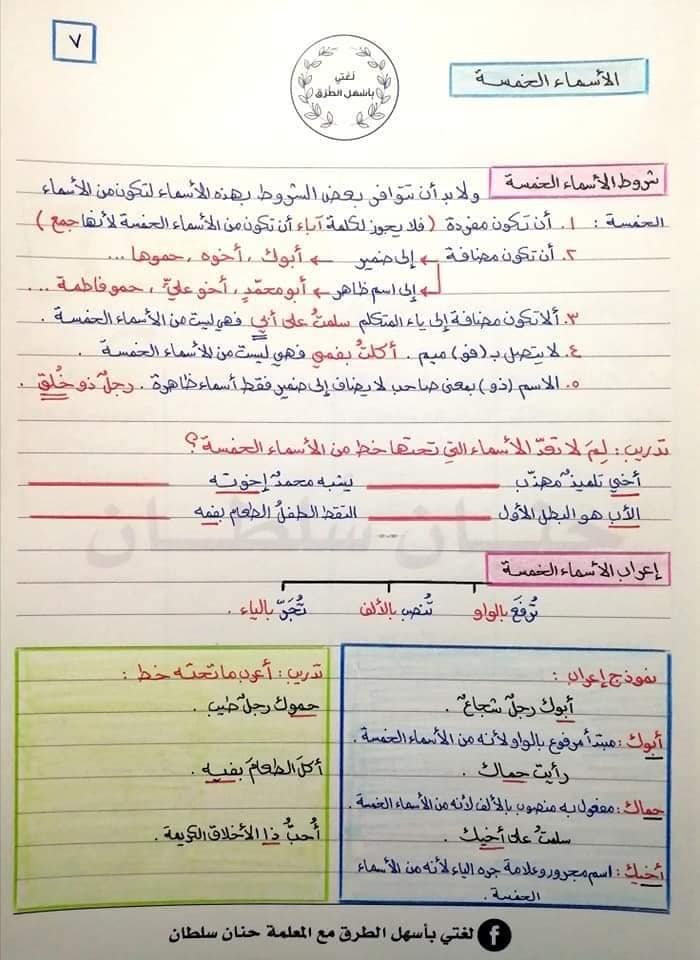 ٧
لغتي
بأسهل الطرق
الأسماء الخمسة
شروط الأسماء الخمسة
ولابد أن تتوافر بعض الشروط بهذه الأسماء لتكون من الأسماء
الخمسة : ١. أن تكون مفردة ( فلا يجوز لكلمة آباء أن تكون من الأسماء الخمسة لأنها جمع )
٢. أن تكون مضافة ← إلى ضمير ← أبوك ، أخوه ، حموها ...
← إلى اسم ظاهر ← أبو محمدٍ، أخو عليٍّ ، حمو فاطمة ...
٣. ألا تكون مضافة إلى ياء المتكلم سلمتُ على أبي فهي ليست من الأسماء الخمسة .
٤. لا يتصل بـ (فو) ميم . أكلتُ بفمي فهي ليست من الأسماء الخمسة .
٥. الاسم (ذو) بمعنى صاحب لا يضاف إلى ضمير فقط أسماء ظاهرة . رجلٌ ذو خُلقٍ .
تدريب : لِمَ لا تعدّ الأسماء التي تحتها خط من الأسماء الخمسة ؟
أخي تلميذٌ مهذّب ــــــــــ ينتبه محمدٌ إخوته ــــــــــ
الأب هو البطل الأول ــــــــــ التقط الطفلُ الطعام بفمه ــــــــــ
حنان سلطان
إعراب الأسماء الخمسة
تُرفعَ بالواو تُنصب بالألف تُجَرّ بالياء .
نموذج إعراب :
أبوك رجلٌ شجاعٌ .
أبوك : مبتدأ مرفوع بالواو لأنه من الأسماء الخمسة .
رأيت حماك .
حماك : مفعول به منصوب بالألف لأنه من الأسماء الخمسة .
سلمتُ على أخيك .
أخيك : اسم مجرور وعلامة جره الياء لأنه من الأسماء
الخمسة .
تدريب : أعرب ما تحته خط :
حموك رجلٌ طيب .
أكلَ الطعامَ بفيه .
أُحبُّ ذا الأخلاق الكريمة .
لغتي بأسهل الطرق مع المعلمة حنان سلطان